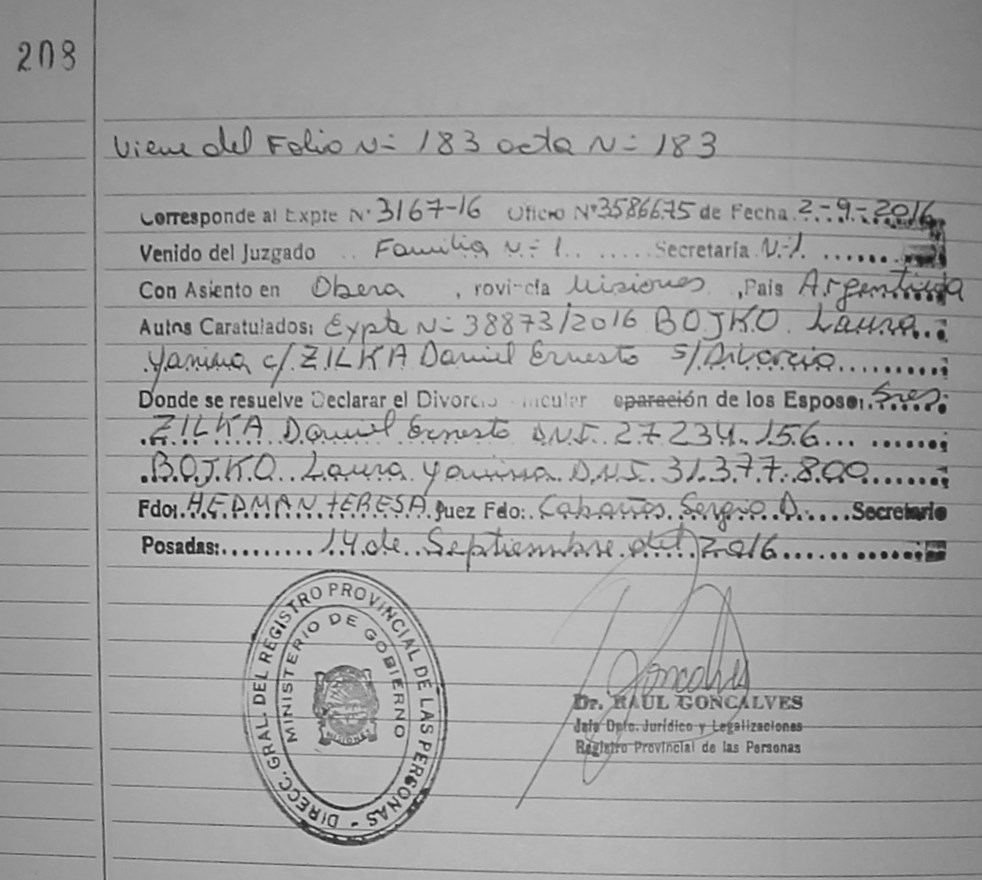 208
Viene del Folio N= 183 acta N= 183
Corresponde al Expte N° 3167-16 Oficio N° 3586675 de Fecha 2-9-2016
Venido del Juzgado Familia N=1 Secretaría N-1
Con Asiento en Obera , rovincia Misiones ,País Argentina
Autos Caratulados: Expte N= 38873/2016 BOJKO Laura
Yanina c/ ZILKA Daniel Ernesto s/Divorcio
Donde se resuelve Declarar el Divorcio incular eparación de los Esposos: Sres
ZILKA Daniel Ernesto D.N.I. 27234.156
BOJKO Laura Yanina D.N.I. 31.377.800
Fdo: HEDMAN TERESA Juez Fdo: Cabañas Sergio D. Secretario
Posadas: 14 de Septiembre del 2016
DIRECC. GRAL. DEL REGISTRO PROVINCIAL DE LAS PERSONAS -
MINISTERIO DE GOBIERNO
MISIONES
Goncalves
Dr. RAUL GONCALVES
Jefe Dpto. Jurídico y Legalizaciones
Registro Provincial de las Personas